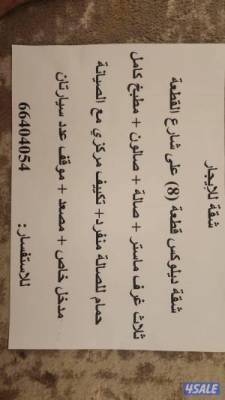 شقة للإيجار
شقة ديلوكس قطعة (8) على شارع القطعة
ثلاث غرف ماستر + صالة + صالون + مطبخ كامل
حمام للصالة منفرد+ تكييف مركزي مع الصيانة
مدخل خاص + مصعد + موقف عدد سيارتان
للاستفسار: 66404054
4SALE